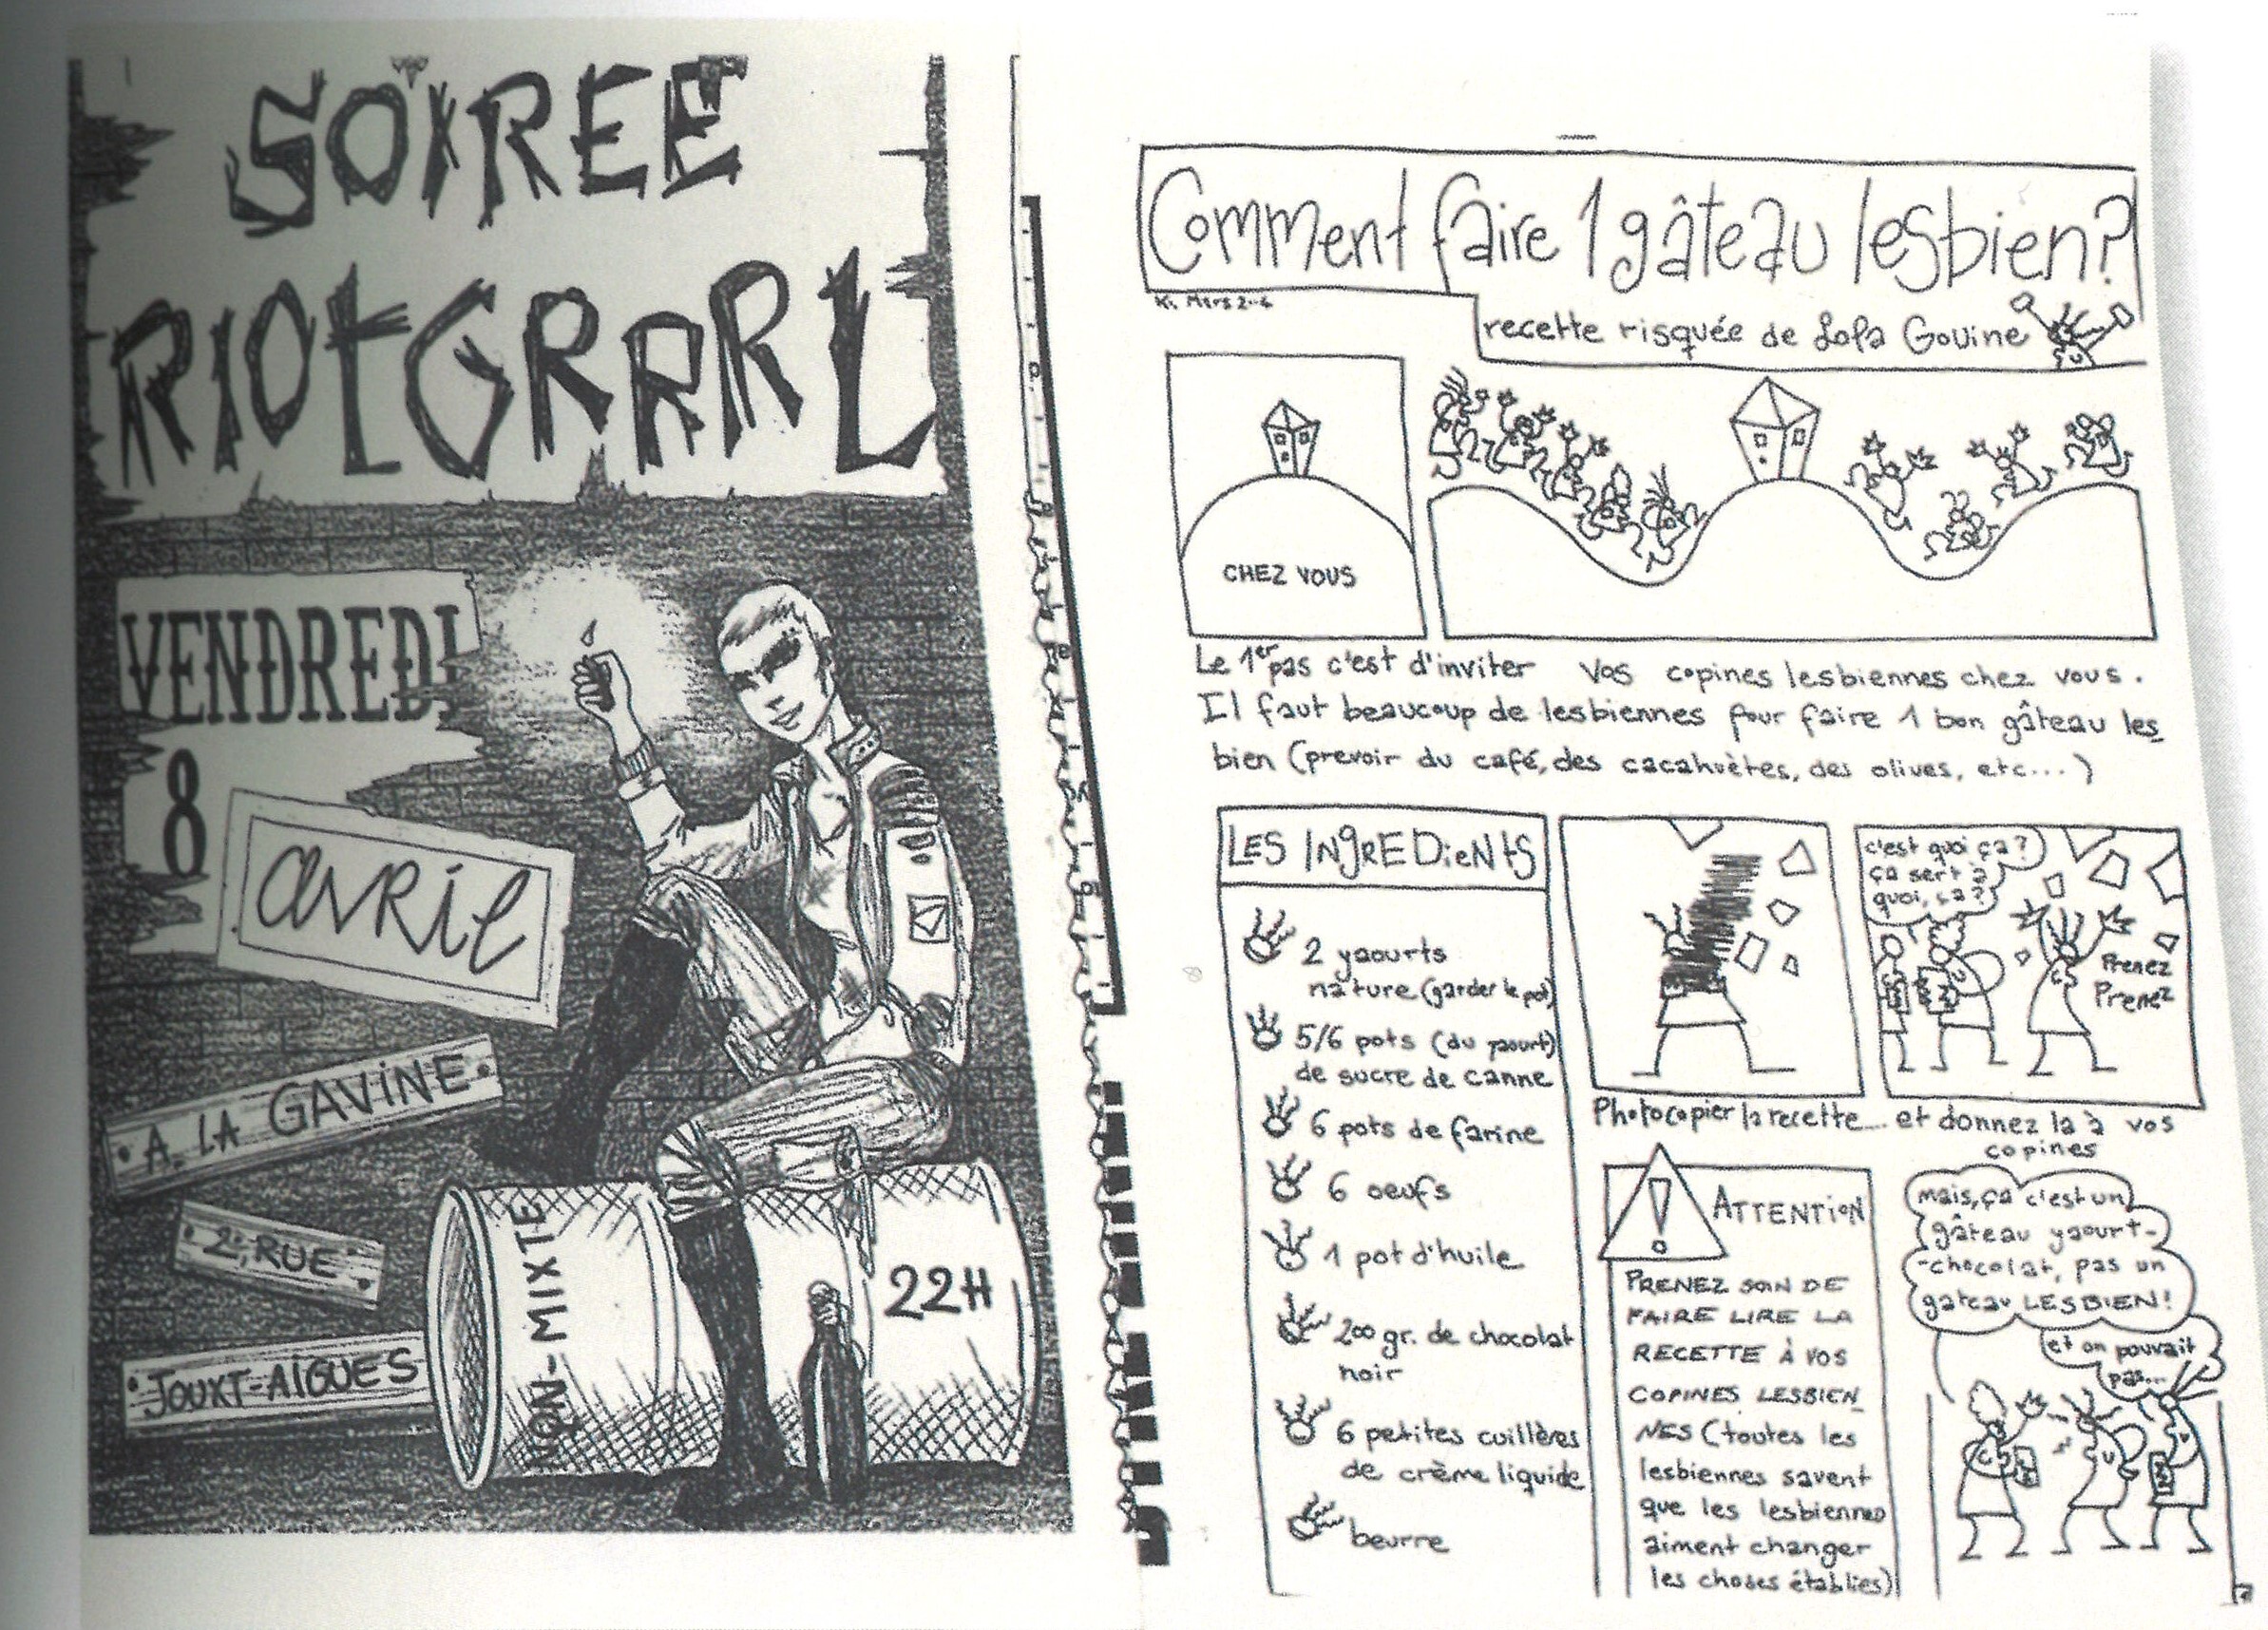 SOIREE
RIOtGRRRL
VENDREDI
8
avril
A LA GAVINE
2, RUE
JOUXT-AIGUES
NON-MIXTE
22H
Comment faire 1 gâteau lesbien?
recette risquée de Lola Gouine
CHEZ VOUS
Le 1er pas c'est d'inviter vos copines lesbiennes chez vous.
Il faut beaucoup de lesbiennes pour faire 1 bon gâteau les
bien (prevoir du café, des cacahuètes, des olives, etc...)
LES INgREDieNtS
2 yaourts
nature (garder le pot)
5/6 pots (du yaourt)
de sucre de canne
6 pots de farine
6 oeufs
1 pot d'huile
200 gr. de chocolat
noir
6 petites cuillères
de crème liquide
beurre
c'est quoi ça?
ça sert à
quoi, ça?
Prenez
Prenez
Photocopier la recette... et donnez la à vos
copines
! ATTENTiON
PRENEZ SOIN DE
FAIRE LIRE LA
RECETTE À VOS
COPINES LESBIEN
NES (toutes les
lesbiennes savent
que les lesbiennes
aiment changer
les choses établies)
mais, ça c'est un
gâteau yaourt-
-chocolat, pas un
gateau LESBIEN!
et on pouvait
pas...